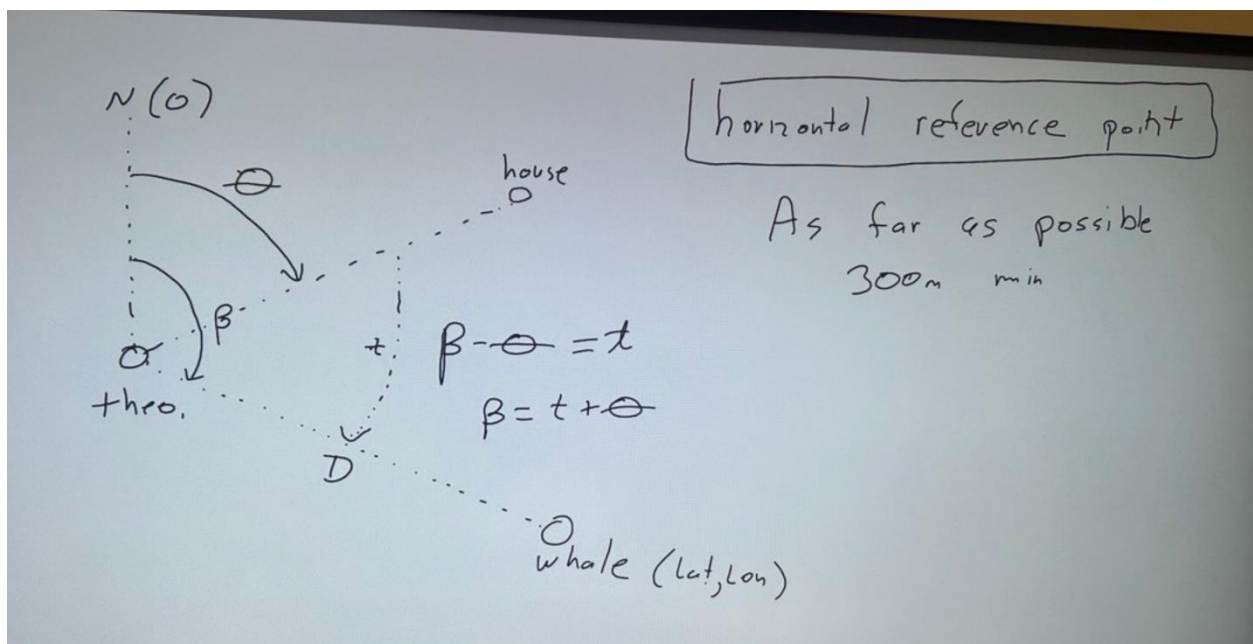 N (0)
θ
house
β
theo.
t
D
β - θ = t
β = t + θ
whale (lat, lon)
horizontal reference point
As far as possible
300m min